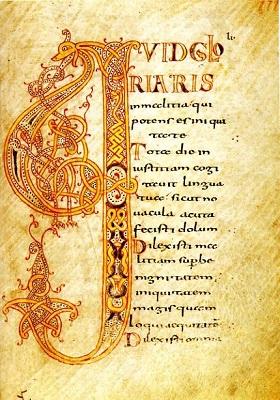 QVIDGLO
RIARIS
in malitia qui
potens es in iniqui
tate
Tota die in
iustitiam cogi
tauit lingua
tua sicut no
uacula acuta
fecisti dolum
Dilexisti ma
litiam super be
nignitatem
iniquitatem
magis quam
loqui aequitatē
Dilexisti omnia